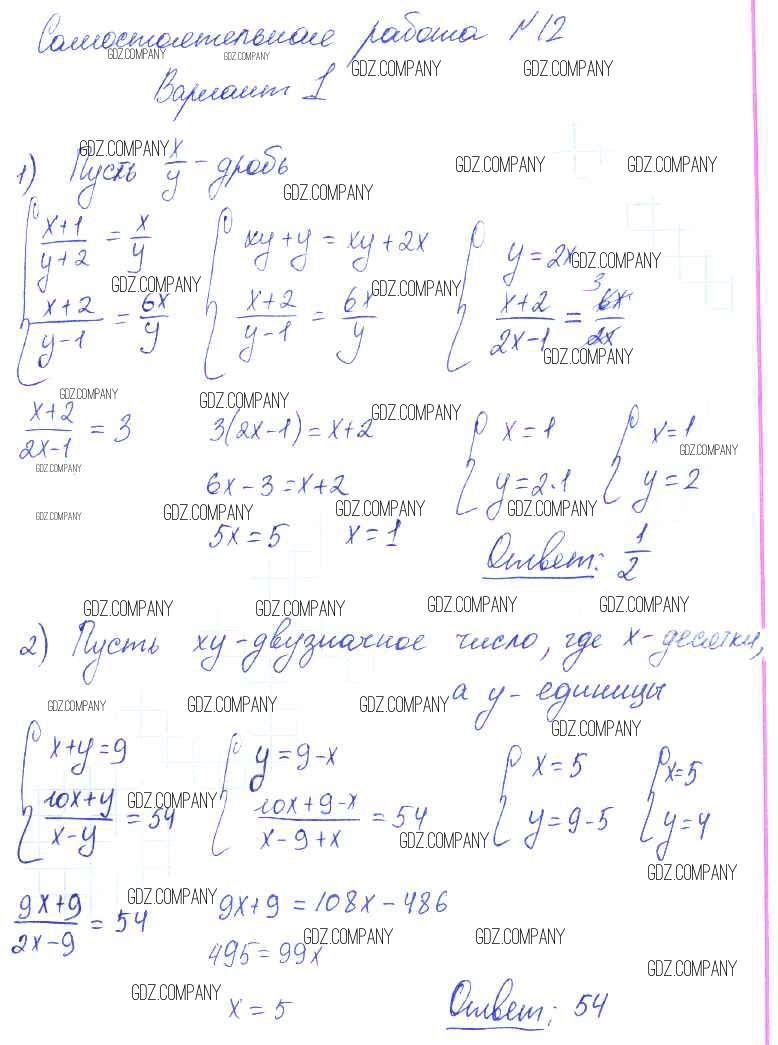 Самостоятельная работа №12
GDZ.COMPANY GDZ.COMPANY GDZ.COMPANY GDZ.COMPANY
Вариант 1
GDZ.COMPANY GDZ.COMPANY GDZ.COMPANY
1) Пусть x/y - дробь
GDZ.COMPANY
{ (x+1)/(y+2) = x/y { xy+y = xy+2x { y=2x
GDZ.COMPANY GDZ.COMPANY GDZ.COMPANY
(x+2)/(y-1) = 6x/y (x+2)/(y-1) = 6x/y (x+2)/(2x-1) = 6x/2x 3
GDZ.COMPANY
GDZ.COMPANY GDZ.COMPANY GDZ.COMPANY
(x+2)/(2x-1) = 3 3(2x-1) = x+2 { x=1 { x=1
GDZ.COMPANY GDZ.COMPANY
6x-3=x+2 y=2·1 y=2
GDZ.COMPANY GDZ.COMPANY GDZ.COMPANY GDZ.COMPANY
5x=5 x=1 Ответ: 1/2
GDZ.COMPANY GDZ.COMPANY GDZ.COMPANY GDZ.COMPANY
2) Пусть xy - двузначное число, где x - десятки,
а y - единицы
GDZ.COMPANY GDZ.COMPANY GDZ.COMPANY
GDZ.COMPANY
{ x+y=9 { y=9-x { x=5 { x=5
GDZ.COMPANY
(10x+y)/(x-y) = 54 (10x+9-x)/(x-9+x) = 54 y=9-5 y=4
GDZ.COMPANY
GDZ.COMPANY
GDZ.COMPANY
(9x+9)/(2x-9) = 54 9x+9 = 108x-486
GDZ.COMPANY GDZ.COMPANY
495=99x
GDZ.COMPANY
GDZ.COMPANY
x=5 Ответ: 54